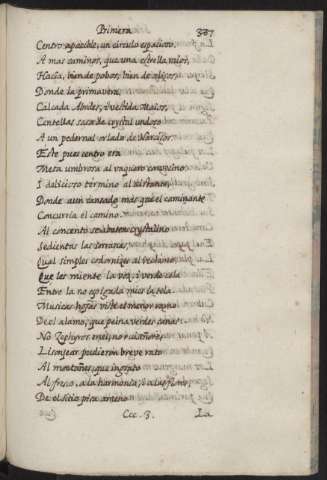 Primera 387
Centro apacible, un circulo espacioso,
A mas caminos, que una estrella raios,
Hacia, bien de pobos, bien de alisos,
Donde la primavera,
Calçada Abriles, i vestida Maios,
Centellas saca de crystal undoso
A un pedernal orlado de Narcisos.
Este pues centro era
Meta umbrosa al vaquero convecino,
I delicioso termino al distante,
Donde aun cansado mas que el caminante
Concurria el camino.
Al concento se abaten crystalino
Sedientas las serranas,
Qual simples codornizes al reclamo,
Que les miente la voz, i verde cela
Entre la no espigada mies la tela.
Musicas hojas viste el menor ramo
De el alamo, que peina verdes canas.
No Zephyros en el, no ruiseñores
Lisonjear pudieron breve rato
Al montañes, que ingrato
Al fresco, a la harmonia, i a las flores,
De el sitio pisa ameno
Ccc. 3. La